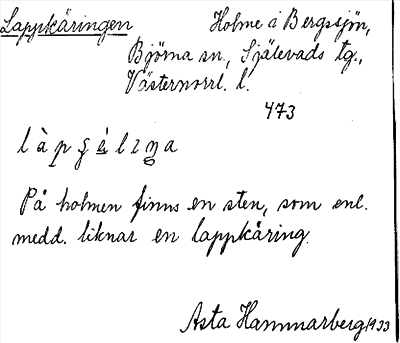 Lappkäringen Holme i Bergsjön,
Björna sn, Själevads tg.,
Västernorrl. l.
473
På holmen finns en sten, som enl.
medd. liknar en lappkäring.
Asta Hammarberg 1933